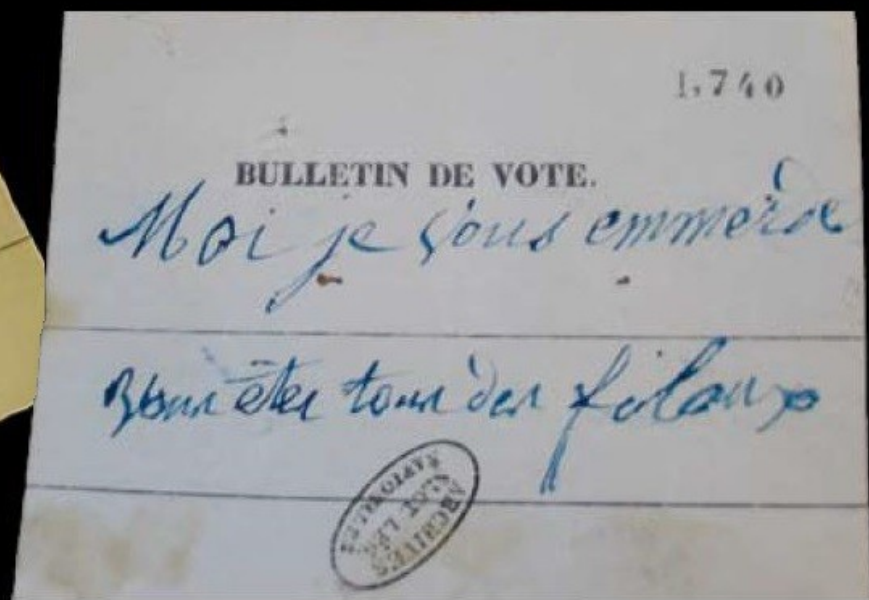 1,740
BULLETIN DE VOTE.
Moi je vous emmerde
Vous êtes tous des filoux
ARCHIVES
NATIONALES